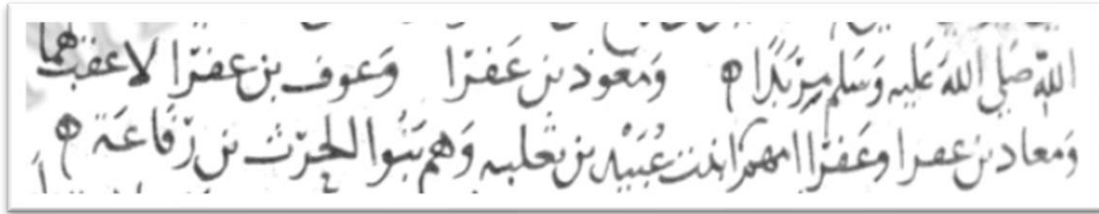 الله صلى الله عليه وسلم من بدرا ومعوذ بن عفرا وعوف بن عفرا لا عقب لهما
ومعاد بن عفرا وعفرا امهم ابنت عبيد بن ثعلبه وهم بنوا الحرث بن رفاعة